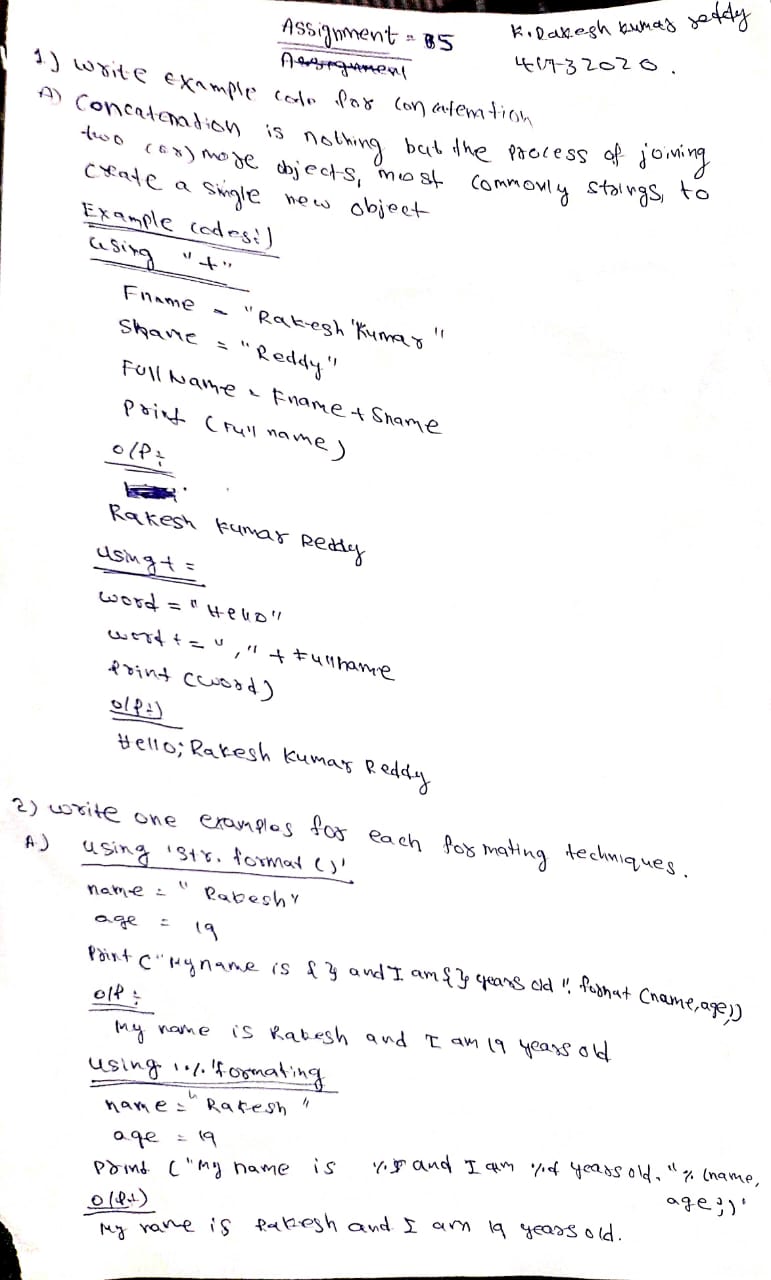 Assignment = 05
K. Rakesh kumar reddy
1) write example code for concatenation
A) Concatenadion is nothing but the process of joining
two (or) more objects, most commonly strings, to
create a single new object
Example codes:)
using "+"
Fname = "Rakesh Kumar"
Sname = "Reddy"
Full Name = Fname + Sname
Print (Full name)
O/P:
Rakesh Kumar Reddy
using + =
word = "Hello"
word + = "," + Fullname
Print (word)
O/P:)
Hello; Rakesh Kumar Reddy
2) write one examples for each formating techniques.
A) using 'str. format ()'
name = "Rakesh"
age = 19
Print ("My name is {} and I am {} years old". format (name, age))
O/P:
My name is Rakesh and I am 19 years old
using '%' formating
name = "Rakesh"
age = 19
Print ("My name is %s and I am %d years old." % (name,
age))
O/P:)
My name is Rakesh and I am 19 years old.